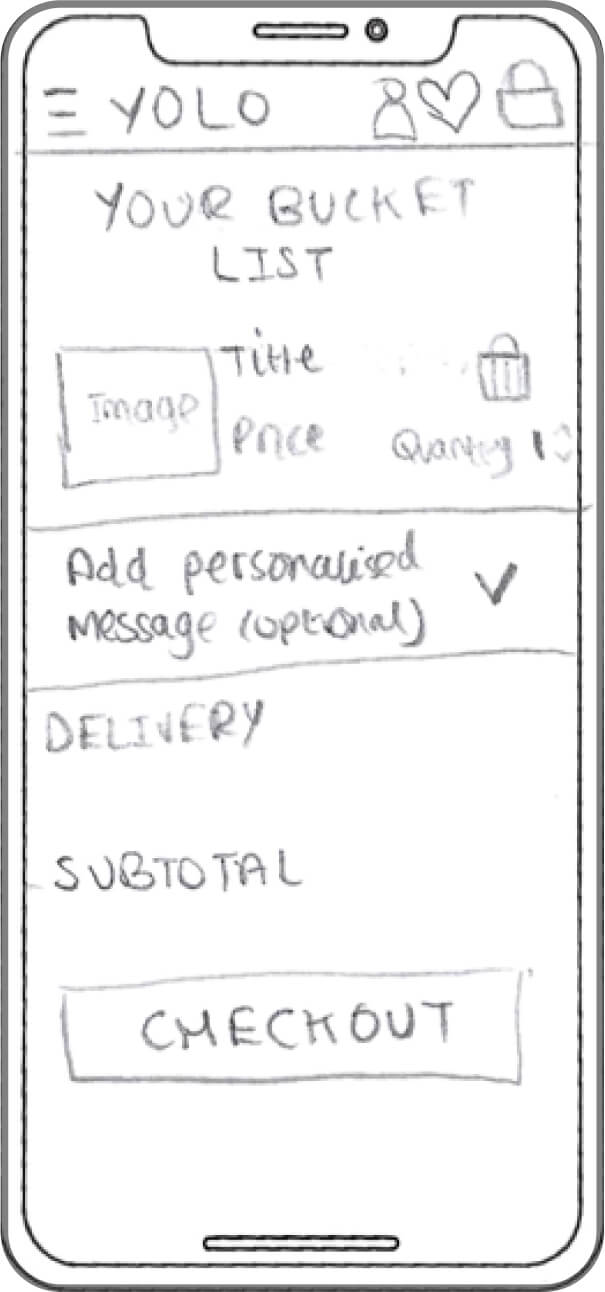 YOLO
YOUR BUCKET
LIST
Title
Image
Price
Quantity 1
Add personalised
message (optional)
DELIVERY
SUBTOTAL
CHECKOUT